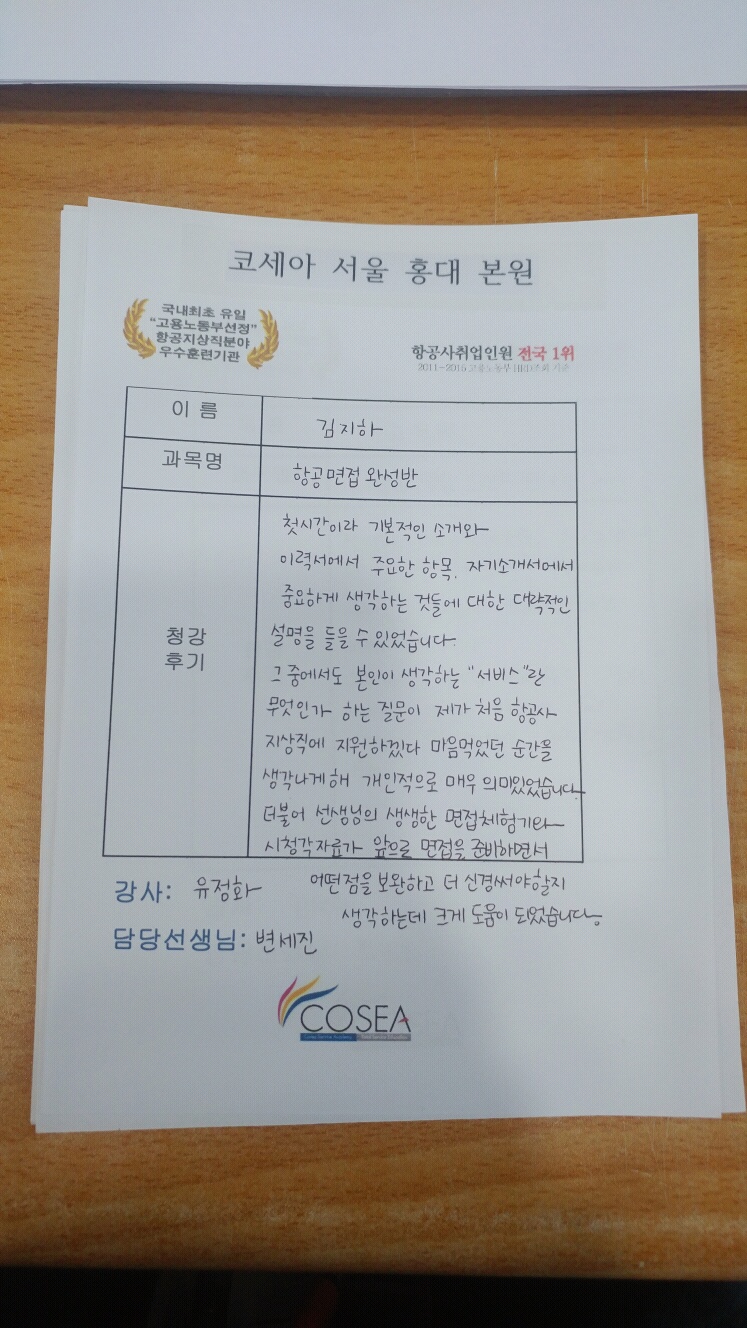 코세아 서울 홍대 본원
국내최초 유일
"고용노동부선정"
항공지상직분야
우수훈련기관
항공사취업인원 전국 1위
2011~2016 고용노동부 HRD조회 기준
이 름
김지하
과목명
항공면접 완성반
청강
후기
첫시간이라 기본적인 소개와
이력서에서 주요한 항목, 자기소개서에서
중요하게 생각하는 것들에 대한 대략적인
설명을 들을 수 있었습니다.
그 중에서도 본인이 생각하는 "서비스"란
무엇인가 하는 질문이 제가 처음 항공사
지상직에 지원하겠다 마음먹었던 순간을
생각나게해 개인적으로 매우 의미있었습니다.
더불어 선생님의 생생한 면접체험기와
시청각자료가 앞으로 면접을 준비하면서
어떤점을 보완하고 더 신경써야할지
생각하는데 크게 도움이 되었습니다.
강사: 유정화
담당선생님: 변세진
COSEA